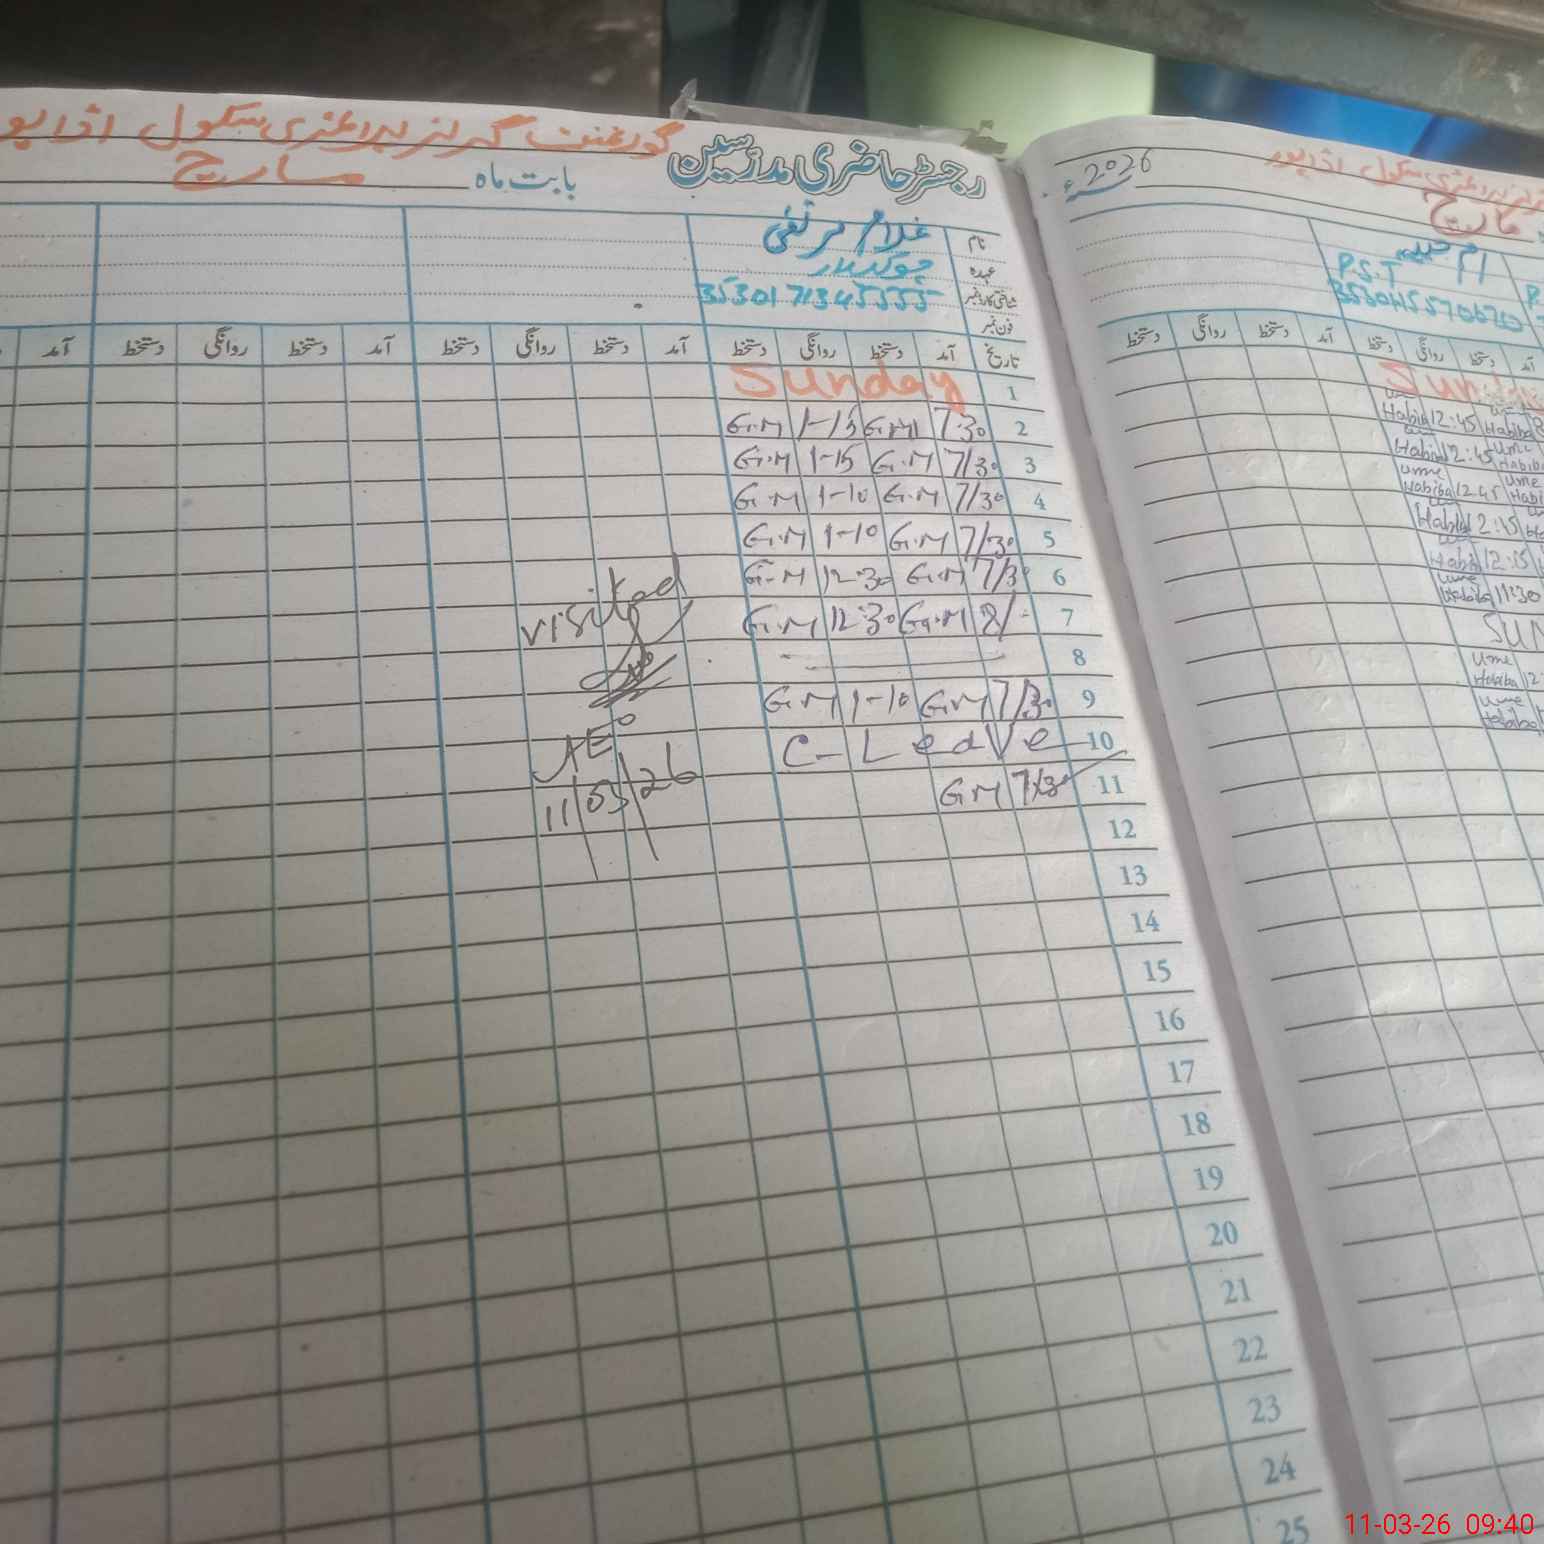 گورنمنٹ گرلز پرائمری سکول اڈا پور
رجسٹر حاضری مدرسین
بابت ماہ مارچ
نام غلام مرتضیٰ
عہدہ چوکیدار
شناختی کارڈ نمبر
فون نمبر
تاریخ آمد دستخط روانگی دستخط آمد دستخط روانگی دستخط آمد دستخط روانگی دستخط آمد
1 Sunday
2 7:30 GM 1-15 G.M
3 7/30 G.M 1-15 G.M
4 7/30 G.M 1-10 G.M
5 7/30 G.M 1-10 G.M
6 7/30 G.M 12:30 G.M
7 8/- G.M 12:30 G.M
8
9 7/30 GM 1-10 GM
10 C-Leave
11 7/30 GM
12
13
14
15
16
17
18
19
20
21
22
23
24
25
visited
AEO
11/03/26
2026ء
سکول اڈا پور
مارچ
ام حبیبہ
P.S.T
آمد دستخط روانگی دستخط آمد دستخط روانگی دستخط
Habiba 12:45 Habiba
Habiba 12:45 Ume Habiba
Ume Habiba 12:45 Ume
Habiba 12:15
Habiba 12:15
Ume Habiba 11:30
SUN
Ume Habiba 12
Ume Habiba
11-03-26 09:40